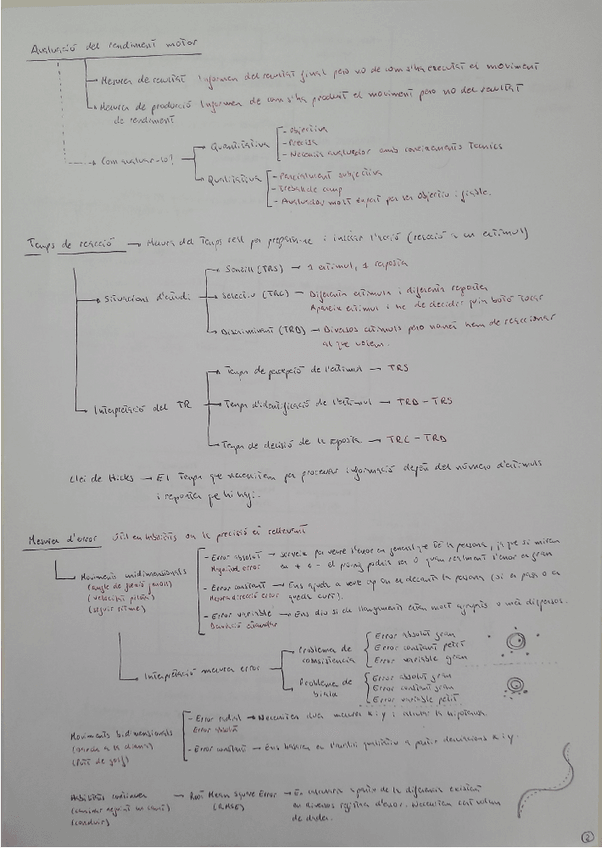 Avaluació del rendiment motor
- Mesura de resultat Informen del resultat final però no de com s'ha executat el moviment
- Mesura de producció Informen de com s'ha produït el moviment però no del resultat
de rendiment
- Com avaluar-ho?
Quantitativa
- Objectiva
- Precisa
- Necessita avaluador amb coneixements tècnics
Qualitativa
- Parcialment subjectiva
- Treball de camp
- Avaluador molt expert per ser objectiu i fiable.
Temps de reacció → Mesura del temps per preparar-se i iniciar l'acció (reacció a un estímul)
Situacions d'estudi
Senzill (TRS) → 1 estímul, 1 resposta
Selectiu (TRC) → Diferents estímuls i diferents respostes
Apareix estímul i he de decidir quin botó tocar
Discriminant (TRD) → Diversos estímuls però només hem de reaccionar
al que volem.
Interpretació del TR
Temps de percepció de l'estímul → TRS
Temps d'identificació de l'estímul → TRD - TRS
Temps de decisió de la resposta → TRC - TRD
Llei de Hicks → El temps que necessitem per processar informació depèn del número d'estímuls
i respostes que hi hagi.
Mesura d'error Útil en habilitats on la precisió és rellevant
Moviments unidimensionals
(angle de flexió genoll)
(velocitat pilota)
(seguir ritme)
- Error absolut → Serveix per veure l'error en general que té la persona, ja que si mirem
Magnitud error en + o - el promig podria ser 0 quan realment l'error és gran
- Error constant → Ens ajuda a veure cap on es decanta la persona (si es passa o es
Mesura direcció error queda curt).
- Error variable → Ens diu si els llançaments estan molt agrupats o més dispersos.
Desviació estàndar
Interpretació mesura error
Problema de
consistència
Error absolut gran
Error constant petit
Error variable gran
Problema de
biaix
Error absolut gran
Error constant gran
Error variable petit
Moviments bidimensionals
(diana)
(Putt de golf)
- Error radial → Necessitem dues mesures x i y i calcular la hipotenusa.
Error absolut
- Error constant → Ens basem en l'anàlisi qualitatiu a partir de x i y.
Habilitats contínues
(conduir)
→ Root Mean Square Error
(RMSE)
→ Es a partir de la diferència existent
en diversos registres d'error. Necessitem
de dades.
2